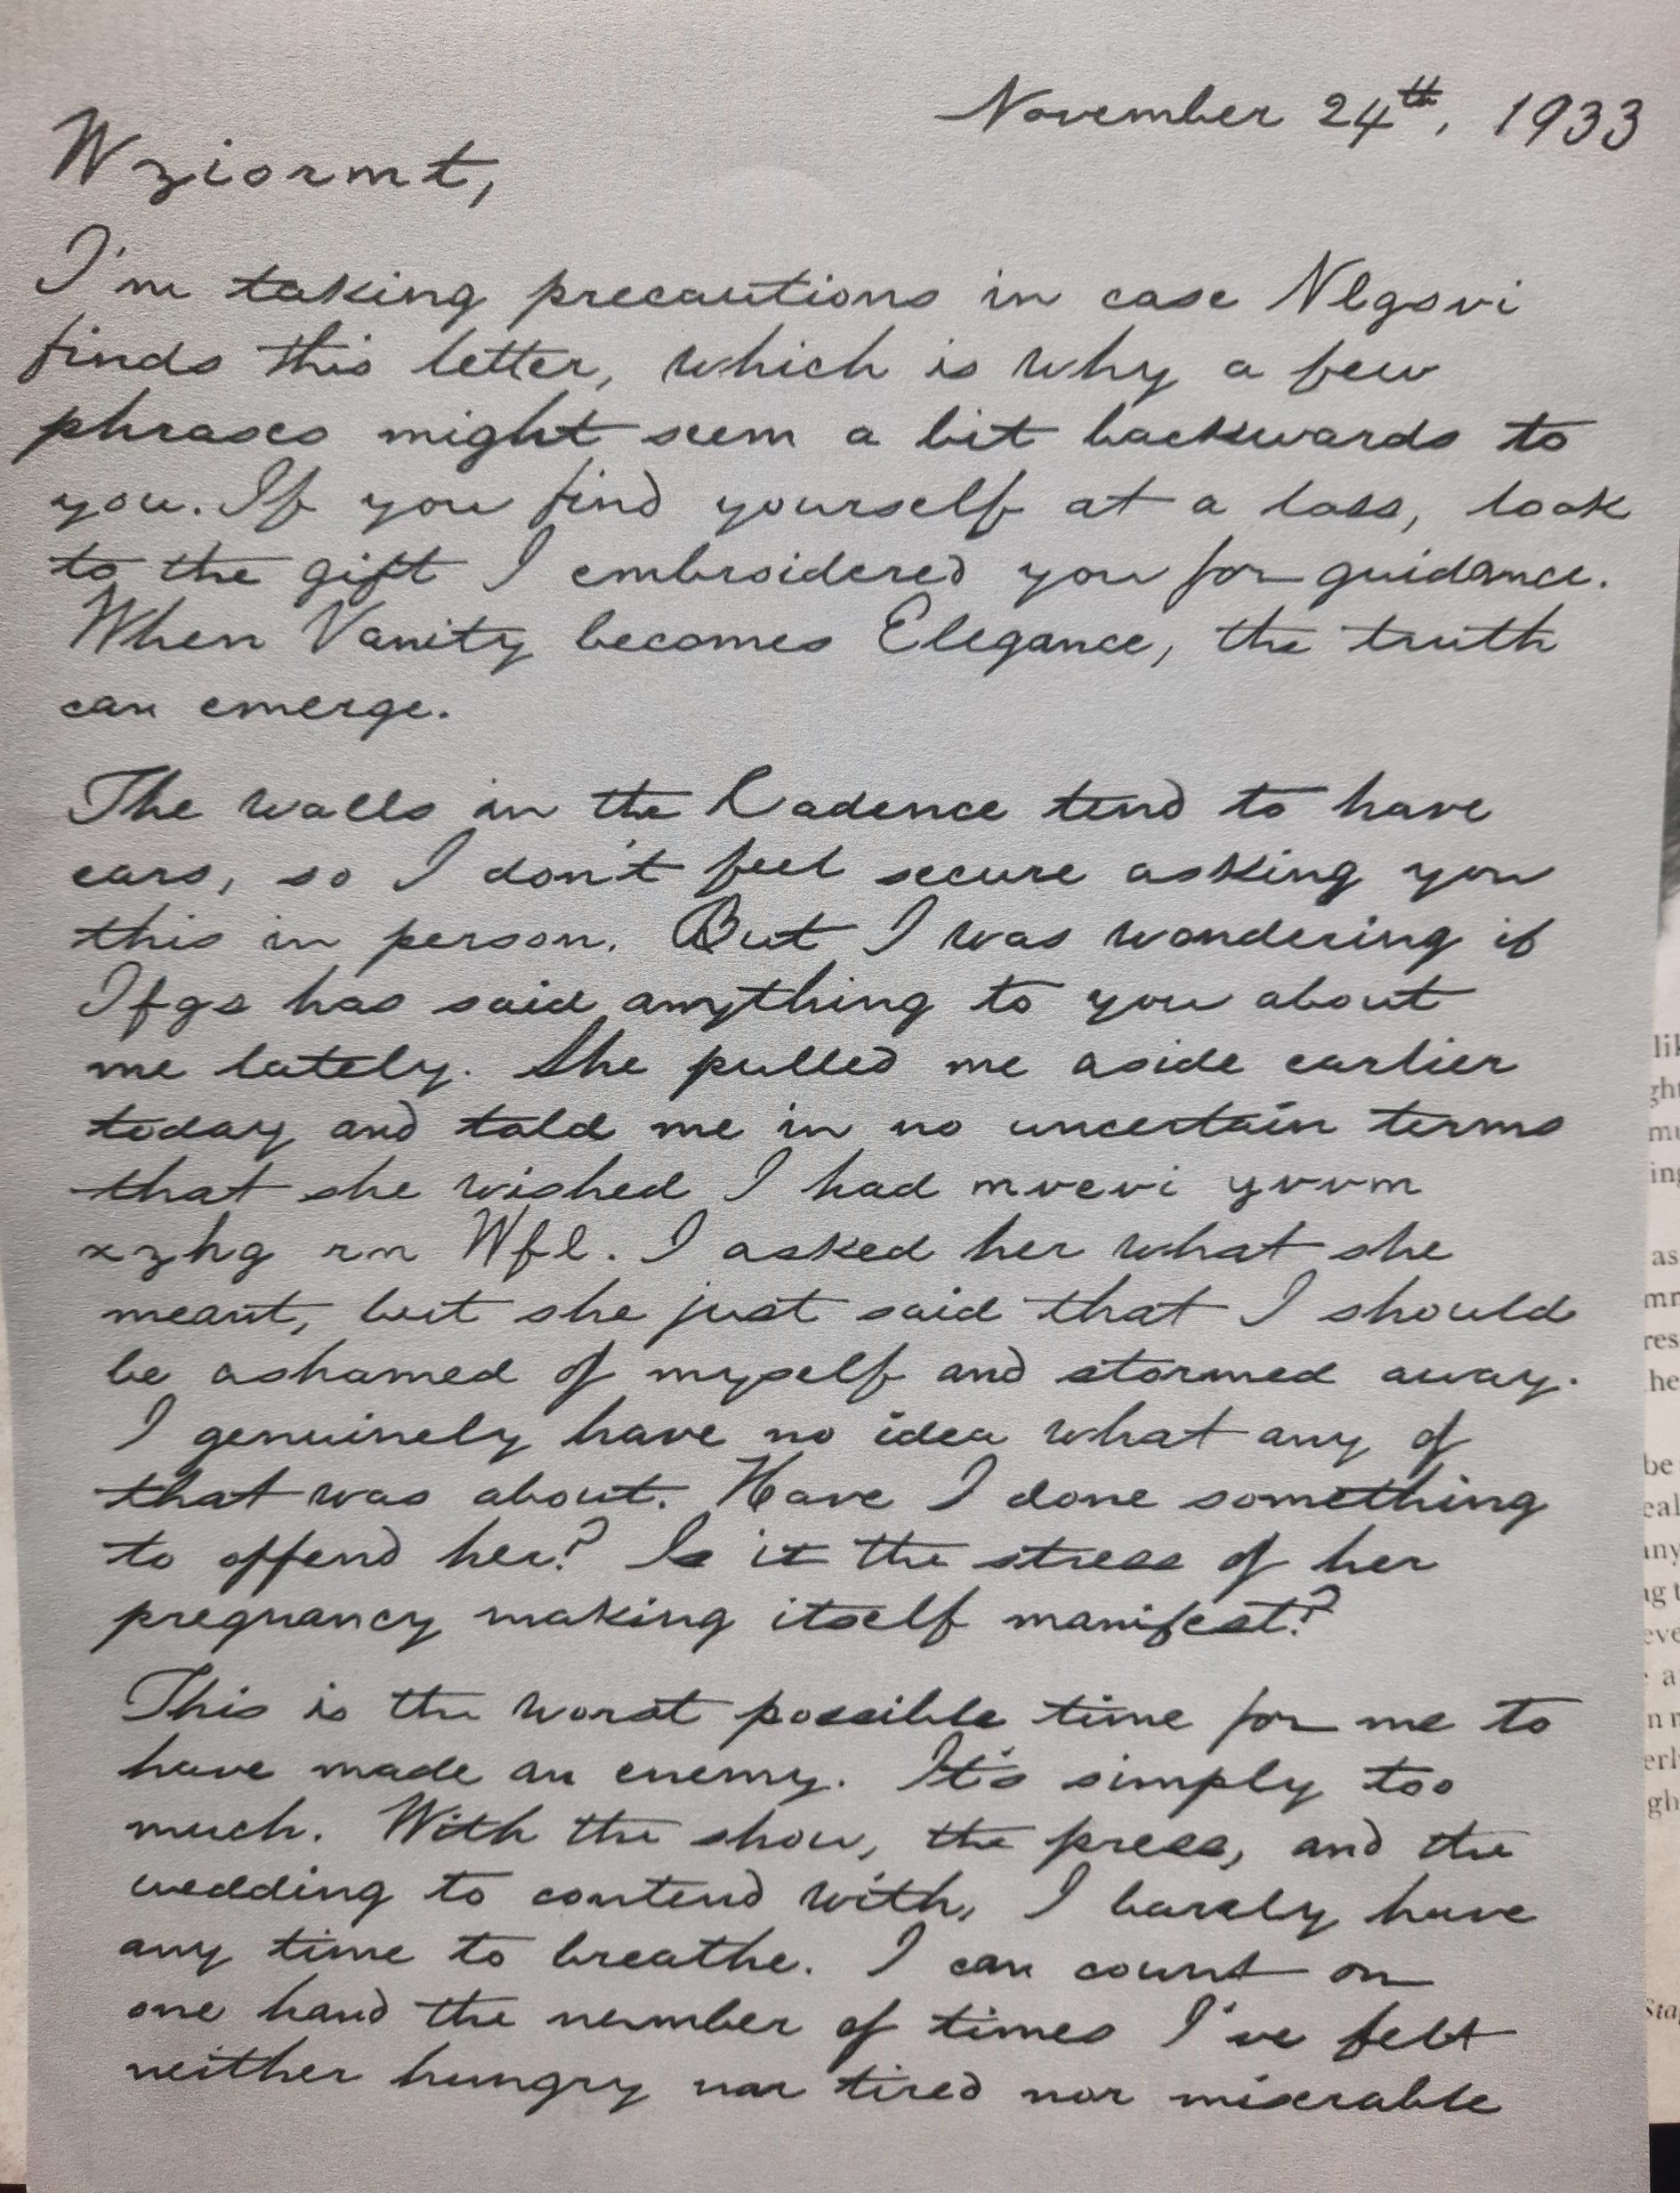 November 24th, 1933
Wziormt,
I'm taking precautions in case Nlgsvi
finds this letter, which is why a few
phrases might seem a bit backwards to
you. If you find yourself at a loss, look
to the gift I embroidered you for guidance.
When Vanity becomes Elegance, the truth
can emerge.
The walls in the Cadence tend to have
ears, so I don't feel secure asking you
this in person. But I was wondering if
Ifgs has said anything to you about
me lately. She pulled me aside earlier
today and told me in no uncertain terms
that she wished I had mvevi yvvm
xzhg rm Wfl. I asked her what she
meant, but she just said that I should
be ashamed of myself and stormed away.
I genuinely have no idea what any of
that was about. Have I done something
to offend her? Is it the stress of her
pregnancy making itself manifest?
This is the worst possible time for me to
have made an enemy. It's simply too
much. With the show, the press, and the
wedding to contend with, I barely have
any time to breathe. I can count on
one hand the number of times I've felt
neither hungry nor tired nor miserable